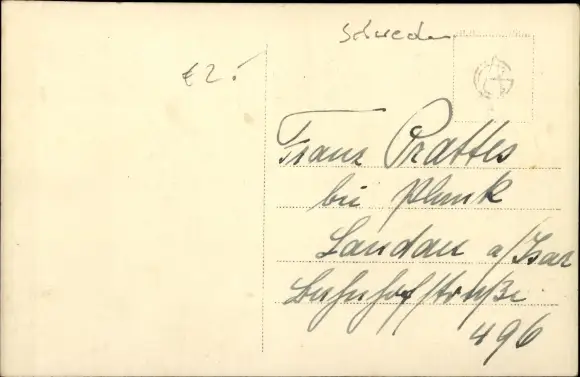 Schweden
€ 2.-
Franz Prattes
bei Plenk
Landau a/Isar
Bahnhofstraße
496